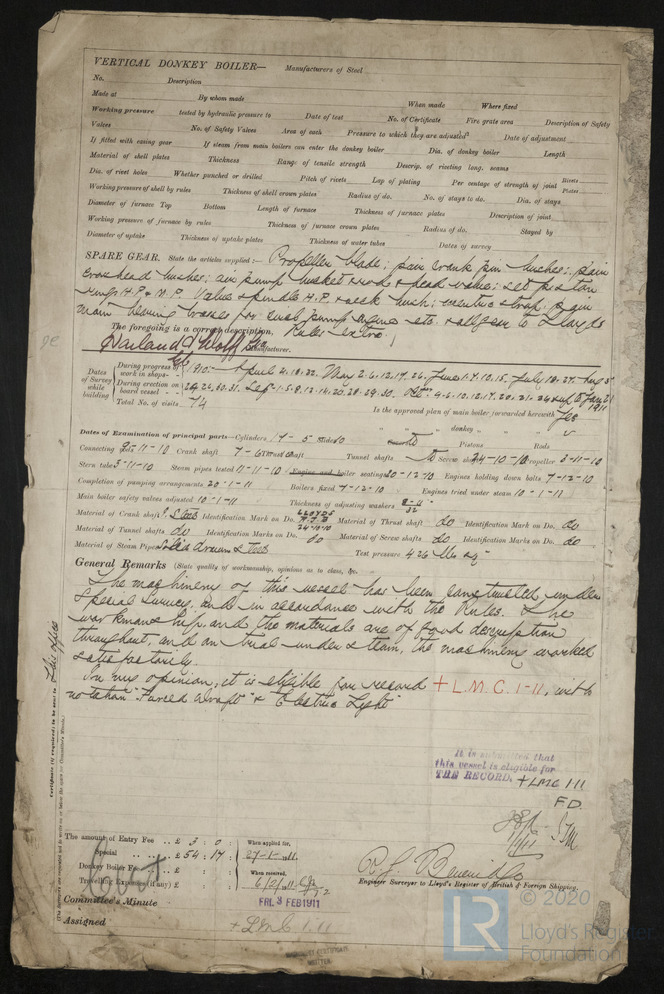 VERTICAL DONKEY BOILER— Manufacturers of Steel
No. Description
Made at By whom made When made Where fixed
Working pressure tested by hydraulic pressure to Date of test No. of Certificate Fire grate area Description of Safety
Valves No. of Safety Valves Area of each Pressure to which they are adjusted Date of adjustment
If fitted with casing gear If steam from main boilers can enter the donkey boiler Dia. of donkey boiler Length
Material of shell plates Thickness Range of tensile strength Descrip. of riveting long. seams
Dia. of rivet holes Whether punched or drilled Pitch of rivets Lap of plating Per centage of strength of joint Rivets Plates
Working pressure of shell by rules Thickness of shell crown plates Radius of do. No. of stays to do. Dia. of stays
Diameter of furnace Top Bottom Length of furnace Thickness of furnace plates Description of joint
Working pressure of furnace by rules Thickness of furnace crown plates Radius of do. Stayed by
Diameter of uptake Thickness of uptake plates Thickness of water tubes Dates of survey
SPARE GEAR. State the articles supplied:— Propeller blade; pair crank pin bushes; pair
crosshead bushes; air pump bucket & rod & head valve; set piston
rings H.P. & M.P. Valve spindle H.P. & eccentric strap; pair
main bearing brasses for ... pump engines etc. & all gear to Lloyds
The foregoing is a correct description, Rules extra.
Harland & Wolff Ltd Manufacturer.
Dates of Survey while building
During progress of work in shops - - 1910:- April 4.18.22. May 2.6.12.17.26. June 1.7.10.15. July
During erection on board vessel - - - 24.26.30.31. Sep 1.5.8.12.14.20.28.29.30. Oct 4.6.10.12.17.20.21.26 1911
Total No. of visits 74
Is the approved plan of main boiler forwarded herewith Yes
" " " donkey " " "
Dates of Examination of principal parts—Cylinders Slides Covers Pistons Rods
Connecting rods -11-10 Crank shaft Thrust shaft Tunnel shafts Screw shaft 24-10-10 Propeller 3-11-10
Stern tube 3-11-10 Steam pipes tested 11-11-10 Engine and boiler seatings 20-12-10 Engines holding down bolts 7-12-10
Completion of pumping arrangements 20-1-11 Boilers fixed 7-12-10 Engines tried under steam 10-1-11
Main boiler safety valves adjusted 10-1-11 Thickness of adjusting washers
Material of Crank shaft I. Steel Identification Mark on Do. LLOYDS 24-10-10 Material of Thrust shaft do Identification Mark on Do. do
Material of Tunnel shafts do Identification Marks on Do. do Material of Screw shafts do Identification Marks on Do. do
Material of Steam Pipes Solid drawn steel Test pressure 426 lbs sq"
General Remarks (State quality of workmanship, opinions as to class, &c.
The machinery of this vessel has been constructed under
Special Survey, and in accordance with the Rules. The
workmanship and the materials are of good description
throughout, and on trial under steam, the machinery worked
satisfactorily.
In my opinion, it is eligible for record + L.M.C. 1-11, with
notation "Forced draft" & "Electric Light"
It is submitted that
this vessel is eligible for
THE RECORD. + LMC 1 11
F.D.
Certificate (if required) to be sent to this office
The amount of Entry Fee .. £ 3 : 0 : When applied for,
Special .. .. .. £ 54 : 14 : 27-1-11.
Donkey Boiler Fee .. .. £ : : When received,
Travelling Expenses (if any) £ : : 6/2/11
Engineer Surveyor to Lloyd's Register of British & Foreign Shipping.
Committee's Minute FRI. 3 FEB 1911
Assigned + LMC 1.11
© 2020
LR Lloyd's Register
Foundation